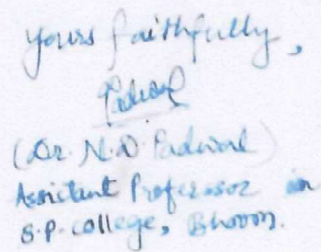 yours faithfully,
Padwal
(Dr. N.D. Padwal)
Assistant Professor in
S.P. College, Bhoom.